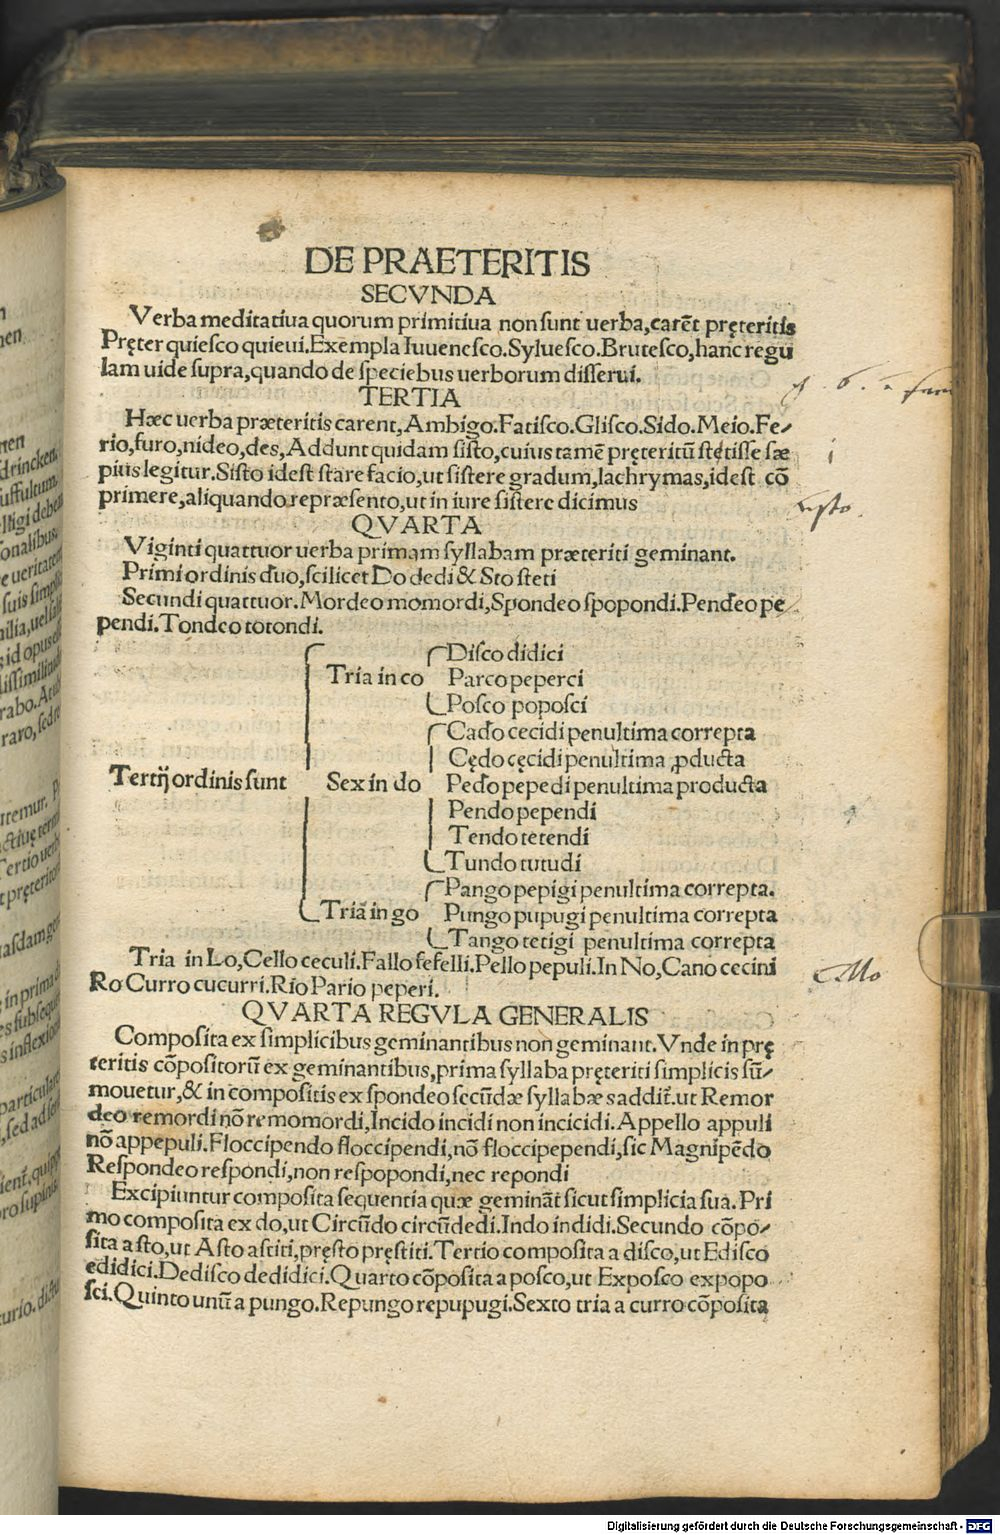 DE PRAETERITIS
SECVNDA
Verba meditatiua quorum primitiua non ſunt uerba,carẽt pręteritis
Pręter quieſco quieui.Exempla Iuuencſco.Syluefco.Bruteſco,hanc regu
lam uide ſupra,quando de ſpeciebus uerborum diſſerui.
TERTIA
Hæc uerba præteritis carent,Ambigo.Fatiſco.Gliſco.Sido.Meio.Fe⸗
rio,furo,nideo,des,Addunt quidam ſiſto,cuius tamẽ pręteritũ ſtetiſſe ſæ
pius legitur.Siſto ideſt ſtare facio,ut ſiſtere gradum,lachrymas,ideſt cõ
primere,aliquando repræſento,ut in iure ſiſtere dicimus
QVARTA
Viginti quattuor uerba primam ſyllabam præteriti geminant.
Primi ordinis duo,ſcilicet Do dedi & Sto ſteti
Secundi quattuor.Mordeo momordi,Spondeo ſpopondi.Pendeo pe
pendi.Tondeo totondi.
Diſco didici
Tria in co Parco peperci
Poſco popoſci
Cado cecidi penultima correpta
Cędo cęcidi penultima ꝓducta
Tertĳ ordinis ſunt Sex in do Pedo pepedi penultima producta
Pendo pependi
Tendo tetendi
Tundo tutudi
Pango pepigi penultima correpta.
Tria in go Pungo pupugi penultima correpta
Tango tetigi penultima correpta
Tria in Lo,Cello ceculi.Fallo fefelli.Pello pepuli.In No,Cano cecini
Ro Curro cucurri.Rio Pario peperi.
QVARTA REGVLA GENERALIS
Compoſita ex ſimplicibus geminantibus non geminant.Vnde in prę
teritis cõpoſitorũ ex geminantibus,prima ſyllaba pręteriti ſimplicis ſũ⸗
mouetur,& in compoſitis ex ſpondeo ſecũdæ ſyllabæ s addit̃.ut Remor
deo remordi nõ remomordi,Incido incidi non incicidi.Appello appuli
nõ appepuli.Floccipendo floccipendi,nõ floccipependi,ſic Magnipẽdo
Reſpondeo reſpondi,non reſpopondi,nec repondi
Excipiuntur compoſita ſequentia quæ geminãt ſicut ſimplicia ſua.Pri
mo compoſita ex do,ut Circũdo circũdedi.Indo indidi.Secundo cõpo⸗
ſita a ſto,ut Aſto aſtiti,pręſto pręſtiti.Tertio compoſita a diſco,ut Ediſco
edidici.Dediſco dedidici.Quarto cõpoſita a poſco,ut Expoſco expopo
ſci.Quinto unũ a pungo.Repungo repupugi.Sexto tria a curro cõpoſita
Digitalisierung gefördert durch die Deutsche Forschungsgemeinschaft - DFG